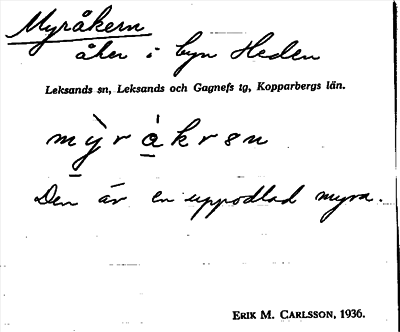 Myråkern
åker i byn Heden
Leksands sn, Leksands och Gagnefs tg, Kopparbergs län.
mỳ̠rà̠krən
Den är en uppodlad myra.
ERIK M. CARLSSON, 1936.